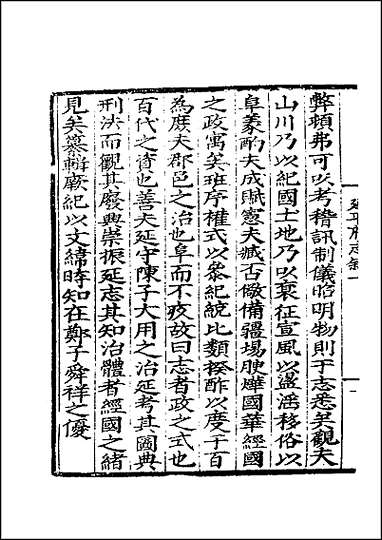 弊頓弗可以考稽訊制儀昭明物則于志悉矣觀夫
山川乃以紀國土地乃以裒征宣風以謠移俗以
阜豢酌夫成賦憲夫臧否儆備疆場腴燁國華經國
之政寓矣班序權式以叅紀統比類揆酢以度于百
為庶夫郡邑之治也阜而不疚故曰志者政之式也
百代之資也善夫延守陳子大用之治延考其圖典
刑決而觀其廢典崇振延志其知治體者經國之緒
見矣纂輯厥紀以文緯時知在鄭子舜祥之優
延平府志叙
一